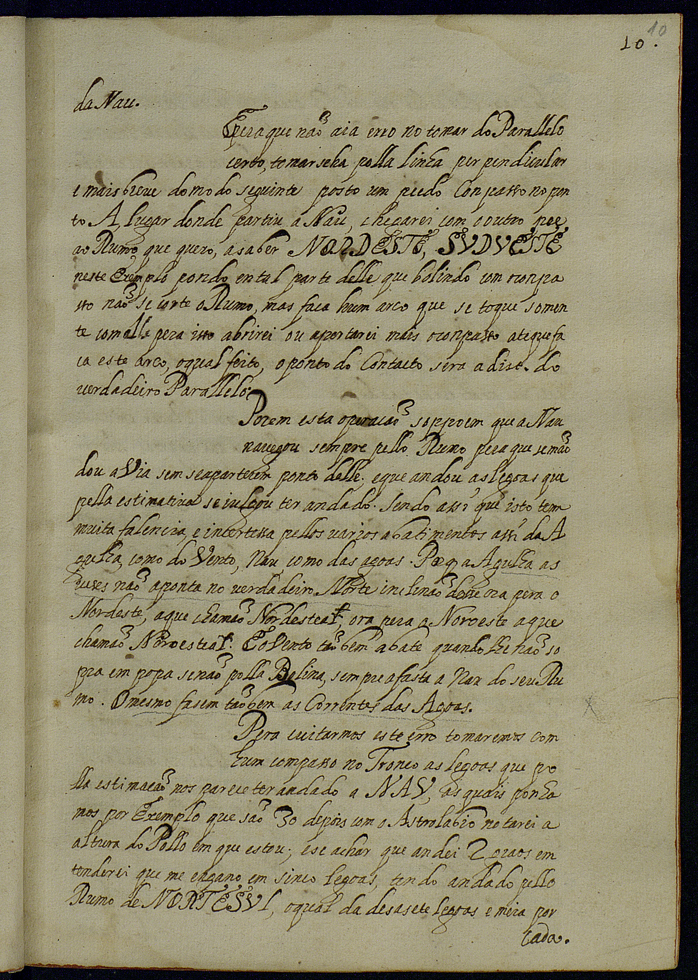 10
10.
da Nau.
E pera que não aia erro no tomar do Parallelo
certo, tomarseha pella linha perpendicular
e mais breue do modo seguinte posto um pee do Conpasso no pon
to A, lugar donde partiu a Nau, e chegarei com o outro pee
ao Rumo que quero, a saber NORDESTE, SVDVESTE
neste Exemplo pondo en tal parte delle que bolindo com o conpa
sso não se corte o Rumo, mas faca hum arco que se toque somen
te com elle pera isto abrirei ou apertarei mais o conpasso ate que fa
ca este arco, o qual feito, o ponto do Contacto sera a dist. do
verdadeiro Parallelo.
Porem esta operacaõ suppoem que a Nau
navegou sempre pello Rumo pera que se man
dou a Via sem se apartar em ponto delle. e que andou as legoas que
pella estimatiua se iulgou ter andado. Sendo assi que isto tem
muita falencia, e incerteza pellos varios abatimentos assi da A
gulha, como do Vento, Nau como das agoas. Porq a Agulha as
vezes naõ aponta no verdadeiro Norte inclinaõ dose ora pera o
Nordeste, a que chamaõ Nordestear, ora pera a Noroeste a que
chamaõ Noroestear. E o Vento taõ bem abate quando lhe naõ so
pra em popa senaõ polla Bolina, sempre afasta a Nao do seu Ru
mo. O mesmo fasem taõbem as Correntes das Agoas.
Pera euitarmos este erro tomaremos com
hum compasso no Tronco as legoas que po
lla estimacaõ nos parece ter andado a NAV, as quais ponha
mos por Exemplo que saõ 30 depois com o Astrolabio notarei a
altura do Pollo em que estou; e se achar que andei 2 graos em
tenderei que me engano em sinco legoas, tendo andado pello
Rumo de NORTE SVL, o qual da desasete legoas e meia por
cada.